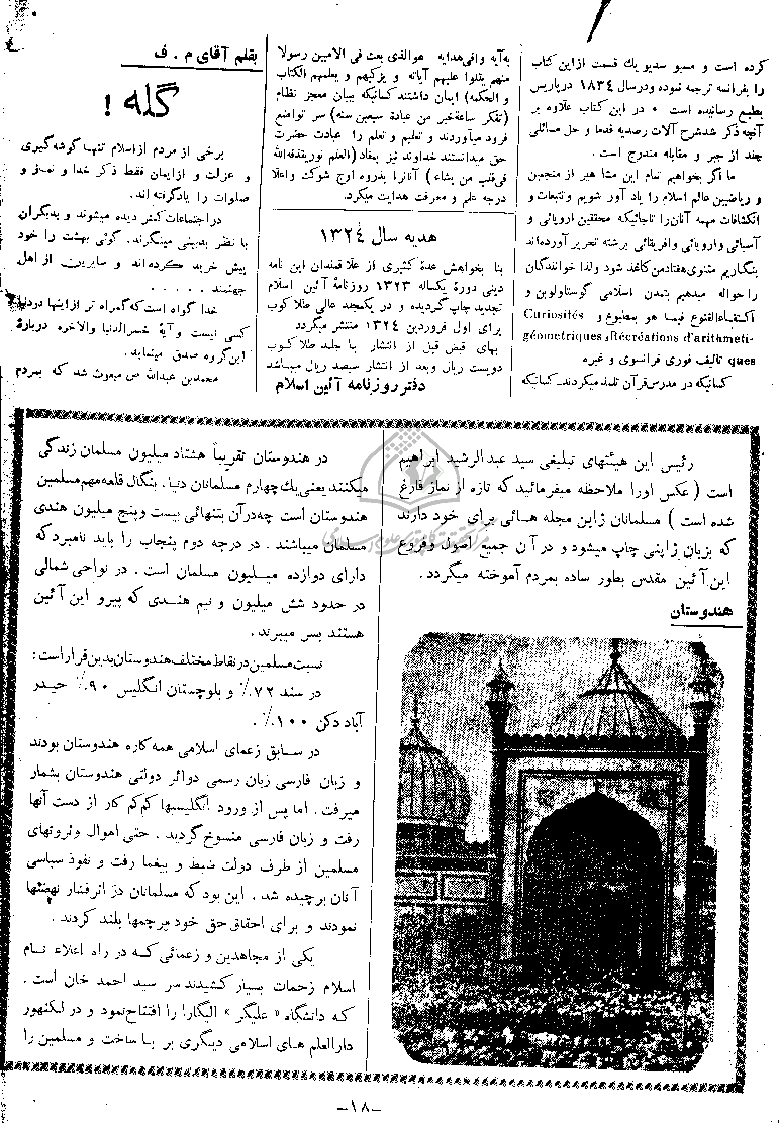 کرده است و مسیو سدیو یك قسمت از این کتاب
را بفرانسه ترجمه نموده و در سال ۱۸۳۴ در پاریس
بطبع رسانیده است • در این کتاب علاوه بر
آنچه ذکر شد شرح آلات رصدیه قدما و حل مسائلی
چند از جبر و مقابله مندرج است.
ما اگر بخواهیم تمام این مشاهیر از منجمین
و ریاضیین عالم اسلام را یاد آور شویم و تتبعات و
انکشافات مهمه آنان را تاجائیکه محققین اروپائی و
آسیائی و اروپائی و افریقائی برشته تحریر آورده‌اند
بنگاریم مثنوی هفتاد من کاغذ شود ولذا خوانندگان
را حواله میدهیم بتمدن اسلامی گوستاولوبن و
اکتفاءالقنوع فیما هو بمطبوع و Curiosités
géometriques و Récréations d'arithmeti-
ques تالیف فوری فرانسوی و غیره
کسانیکه در مدرس قرآن تلمذ میکردند کسانیکه
به‌آیه وافی‌هدایه هوالذی بعث فی الامیین رسولا
منهم یتلوا علیهم آیاته و یزکیهم و یعلمهم الکتاب
و الحکمه) ایمان داشتند کسانیکه ببیان معجز نظام
(تفکر ساعة خیر من عبادة سبعین سنه) سر تواضع
فرود میآوردند و تعلیم و تعلم را عبادت حضرت
حق میدانستند خداوند نیز بمفاد (العلم نور یقذفه‌الله
فی‌قلب من یشاء) آنانرا بذروه اوج شوکت و اعلا
درجه علم و معرفت هدایت میکرد.
هدیه سال ۱۳۲۴
بنا بخواهش عدهٔ کثیری از علاقمندان این نامه
دینی دورهٔ یکساله ۱۳۲۳ روزنامهٔ آئین اسلام
تجدید چاپ گردیده و در یکمجلد عالی طلاکوب
برای اول فروردین ۱۳۲۴ منتشر میگردد
بهای قبض قبل از انتشار با جلد طلاکوب
دویست ریال و بعد از انتشار سیصد ریال میباشد
دفتر روزنامه آئین اسلام
بقلم آقای م . ف
گله !
برخی از مردم از اسلام تنها گوشه‌گیری
و عزلت و از ایمان فقط ذکر خدا و نماز و
صلوات را یادگرفته‌اند.
در اجتماعات کمتر دیده میشوند و بدیگران
با نظر بدبینی مینگرند. گوئی بهشت را خود
پیش خرید کرده‌اند و سایرین از اهل
جهنمند . . . . .
خدا گواه است که گمراه تر از اینها در دنیا
کسی نیست و آیهٔ خسرالدنیا والاخره دربارهٔ
این‌گروه صدق مینماید.
محمدبن عبدالله ص مبعوث شد که بمردم
رئیس این هیئتهای تبلیغی سید عبدالرشید ابراهیم
است ( عکس اورا ملاحظه میفرمائید که تازه از نماز فارغ
شده است ) مسلمانان ژاپن مجله هائی برای خود دارند
که بزبان ژاپنی چاپ میشود و در آن جمیع اصول و فروع
این آئین مقدس بطور ساده بمردم آموخته میگردد.
هندوستان
در هندوستان تقریباً هشتاد میلیون مسلمان زندگی
میکنند یعنی یك چهارم مسلمانان دنیا. بنگال قلعه مهم مسلمین
هندوستان است چه در آن بتنهائی بیست و پنج میلیون هندی
مسلمان میباشند . در درجه دوم پنجاب را باید نامبرد که
دارای دوازده میلیون مسلمان است . در نواحی شمالی
در حدود شش میلیون و نیم هندی که پیرو این آئین
هستند بسر میبرند.
نسبت مسلمین در نقاط مختلف هندوستان بدین قرار است:
در سند ۷۲٪ و بلوچستان انگلیس ۹۰٪ حیدر
آباد دکن ۱۰۰٪ .
در سابق زعمای اسلامی همه کاره هندوستان بودند
و زبان فارسی زبان رسمی دوائر دولتی هندوستان بشمار
میرفت . اما پس از ورود انگلیسها کم‌کم کار از دست آنها
رفت و زبان فارسی منسوخ گردید . حتی اموال و ثروتهای
مسلمین از طرف دولت ضبط و بیغما رفت و نفوذ سیاسی
آنان برچیده شد . این بود که مسلمانان در اثر فشار نهضتها
نمودند و برای احقاق حق خود پرچمها بلند کردند .
یکی از مجاهدین و زعمائی که در راه اعلاء نام
اسلام زحمات بسیار کشیدند سر سید احمد خان است .
که دانشگاه « علیگر » الیگارا را افتتاح نمود و در لکنهور
دارالعلم های اسلامی دیگری بر پا ساخت و مسلمین را
-۱۸-